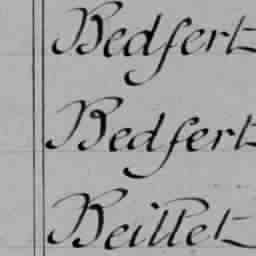 Bedfert
Bedfert
Beillet